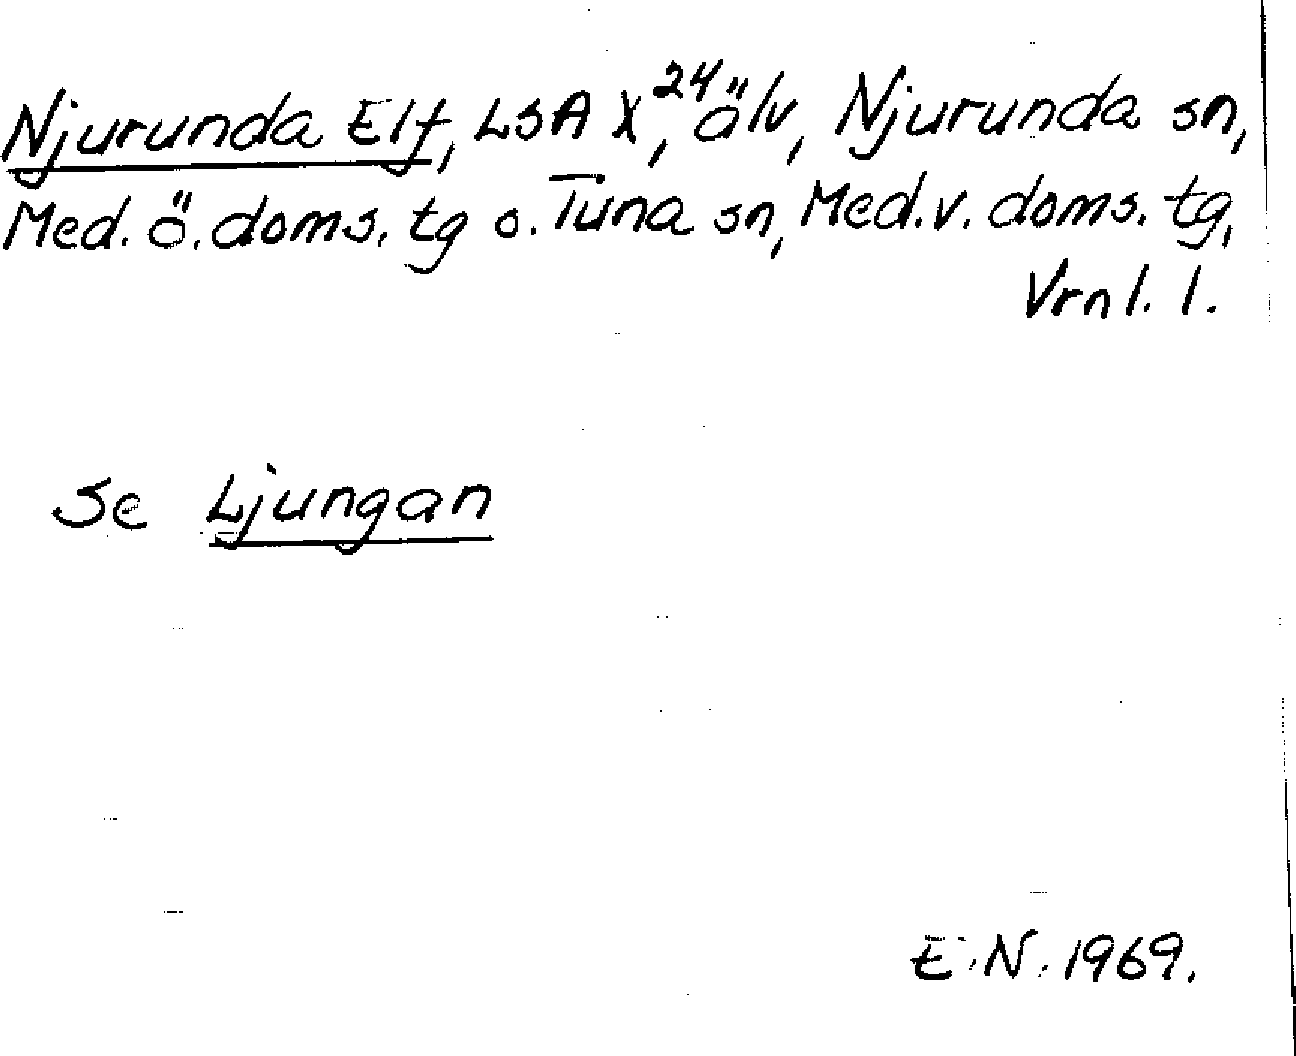 Njurunda Elf, LSA X,²⁴ älv, Njurunda sn,
Med. ö. doms. tg o. Tuna sn, Med. v. doms. tg,
Vrnl. l.
Se Ljungan
E.N. 1969.